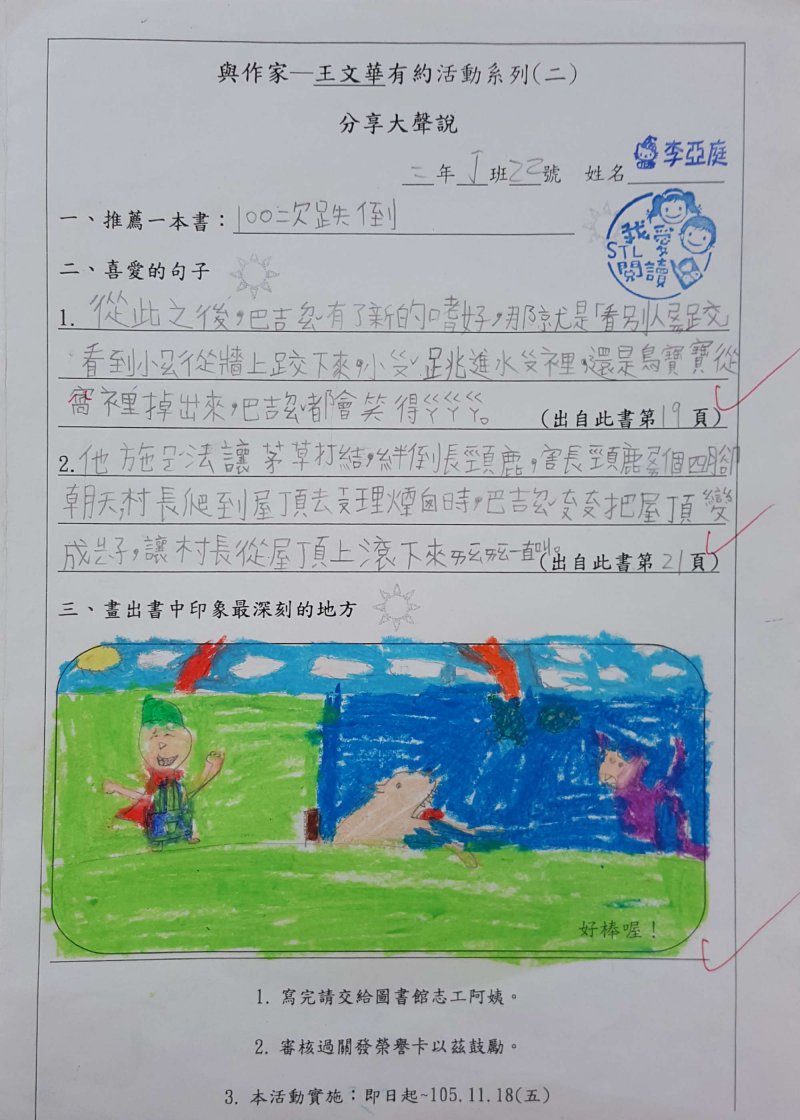 與作家—王文華有約活動系列(二)
分享大聲說
三年丁班22號 姓名 李亞庭
一、推薦一本書：100次跌倒
我愛
STL
閱讀
二、喜愛的句子
1. 從此之後，巴吉ㄫㄨ有了新的嗜好，那就是「看別人跌跤」
看到小公從牆上跤下來，小ㄍㄡˇ跳進水ㄍㄡ裡，還是鳥寶寶從
窩裡掉出來，巴吉都會笑得ㄚㄚㄚ。
(出自此書第19頁)
2. 他施法讓茅草打結，絆倒長頸鹿，害長頸鹿個四腳
朝天，村長爬到屋頂去理煙囪時，巴吉把屋頂變
成，讓村長從屋頂上滾下來一直叫。
(出自此書第21頁)
三、畫出書中印象最深刻的地方
好棒喔！
1. 寫完請交給圖書館志工阿姨。
2. 審核過關發榮譽卡以茲鼓勵。
3. 本活動實施：即日起~105.11.18(五)